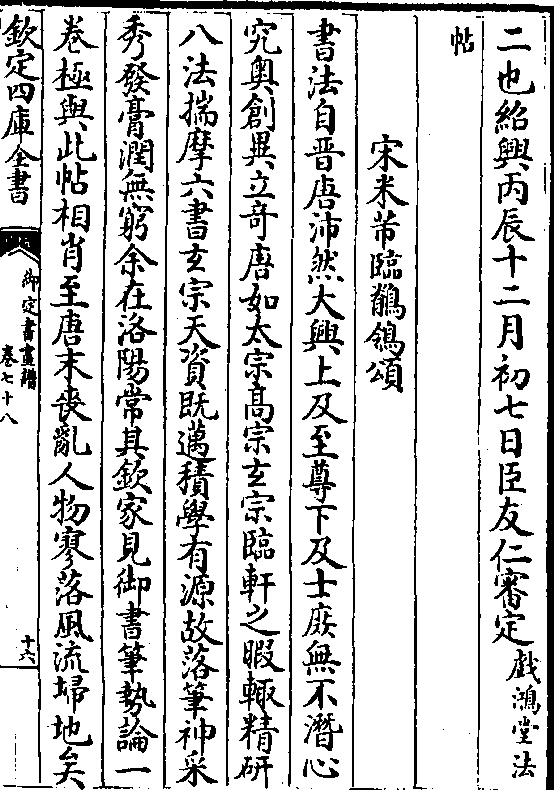 二也紹興丙辰十二月初七日臣友仁審定戲鴻堂法
帖
宋米芾臨鶺鴒頌
書法自晉唐沛然大興上及至尊下及士庶無不潛心
究奧創異立竒唐如太宗髙宗玄宗臨軒之暇輙精研
八法揣摩六書玄宗天資既邁積學有源故落筆神采
秀發膏潤無窮余在洛陽常其欽家見御書筆勢論一
卷極與此帖相肖至唐末喪亂人物寥落風流埽地矣
欽定四庫全書
御定書畫譜
卷七十八
十六